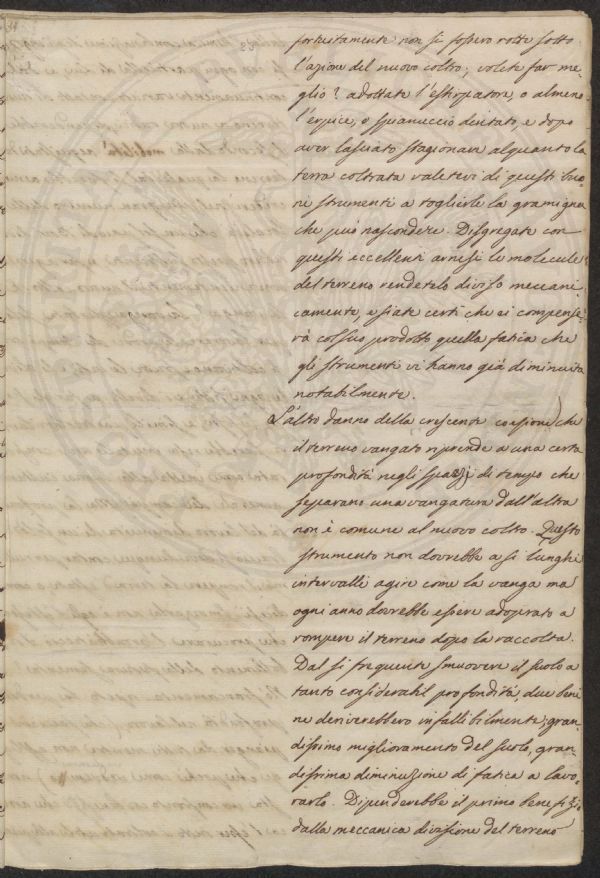 23
fortestamente non si fossero rotte sotto
l'azione del nuovo coltro; volete far me-
glio? adottate l'estirpatore, o almeno
l'erpice, o spianuccio dentato, e dopo
aver lasciato stagionare alquanto la
terra coltrata valetevi di questi buo-
ni strumenti a togliere la gramigna
che può nascondere. Disgregate con
questi eccellenti arnesi le molecule
del terreno rendetelo diviso meccani-
camente, e siate certi che ei compense-
rà col suo prodotto quella fatica che
gli strumenti vi hanno già diminuita
notabilmente.
L'alto danno della crescente coesione che
il terreno vangato riprende a una certa
profondità negli spazj di tempo che
separano una vangatura dall'altra
non è comune al nuovo coltro. Questo
strumento non dovrebbe a sì lunghi
intervalli agire come la vanga ma
ogni anno dovrebbe essere adoprato a
rompere il terreno dopo la raccolta.
Dal sì frequente smuovere il suolo a
tanto considerabil profondità, due beni
ne deriverebbero infallibilmente; gran-
dissimo miglioramento del suolo, gran-
dissima diminuzione di fatica a lavo-
rarlo. Dipenderebbe il primo benefizio
dalla meccanica divisione del terreno